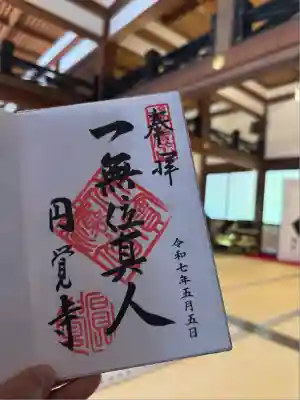 奉拝
一無位真人
円覚寺
令和七年五月五日